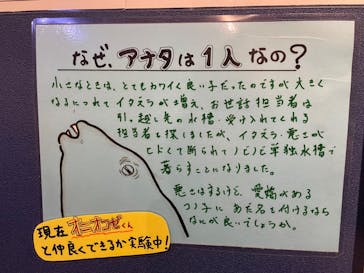 なぜ、アナタは1人なの?
小さなときは、とてもカワイく良い子だったのですが大きく
なるにつれてイタズラが増え、お世話担当者は
引っ越し先の水槽・受け入れてくれる
担当者を探しましたが、イタズラ・悪さが
ヒドくて断られてノビノビ単独水槽で
暮らすことになりました。
悪さはするけど、愛嬌がある
コノ子に あだ名を付けるなら
なにが良いでしょうか。
現在 オニオコゼくん
と仲良くできるか実験中!